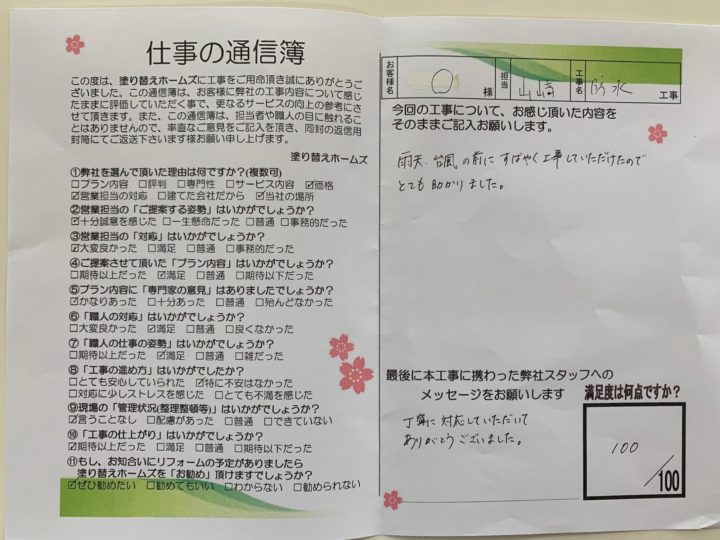 仕事の通信簿
この度は、塗り替えホームズに工事をご用命頂き誠にありがとうご
ざいました。この通信簿は、お客様に弊社の工事内容について感じ
たままに評価していただく事で、更なるサービスの向上の参考にさ
せて頂きます。また、この通信簿は、担当者や職人の目に触れるこ
とはありませんので、率直なご意見をご記入を頂き、同封の返信用
封筒にてご返送下さいます様お願い申し上げます。
塗り替えホームズ
①弊社を選んで頂いた理由は何ですか?(複数可)
□プラン内容 □評判 □専門性 □サービス内容 ☑価格
☑営業担当の対応 □建てた会社だから ☑当社の場所
②営業担当の「ご提案する姿勢」はいかがでしょうか?
☑十分誠意を感じた □一生懸命だった □普通 □事務的だった
③営業担当の「対応」はいかがでしょうか?
☑大変良かった □満足 □普通 □事務的だった
④ご提案させて頂いた「プラン内容」はいかがでしょうか?
□期待以上だった ☑満足 □普通 □期待以下だった
⑤プラン内容に「専門家の意見」はありましたでしょうか?
☑かなりあった □十分あった □普通 □殆んどなかった
⑥「職人の対応」はいかがでしょうか?
□大変良かった ☑満足 □普通 □良くなかった
⑦「職人の仕事の姿勢」はいかがでしょうか?
□期待以上だった ☑満足 □普通 □雑だった
⑧「工事の進め方」はいかがでしたか?
□とても安心していられた ☑特に不安はなかった
□対応に少しストレスを感じた □とても不満を感じた
⑨現場の「管理状況(整理整頓等)」はいかがでしょうか?
☑言うことなし □配慮があった □普通 □できていない
⑩「工事の仕上がり」はいかがでしょうか?
☑期待以上だった □満足 □普通 □期待以下だった
⑪もし、お知合いにリフォームの予定がありましたら
塗り替えホームズを「お勧め」頂けますでしょうか?
☑ぜひ勧めたい □勧めてもいい □わからない □勧められない
お客様名 様 担当 山﨑 工事名 防水 工事
今回の工事について、お感じ頂いた内容を
そのままご記入お願いします。
雨天、台風の前にすばやく工事していただけたので
とても助かりました。
最後に本工事に携わった弊社スタッフへの
メッセージをお願いします
丁寧に対応していただいて
ありがとうございました。
満足度は何点ですか?
100
/100